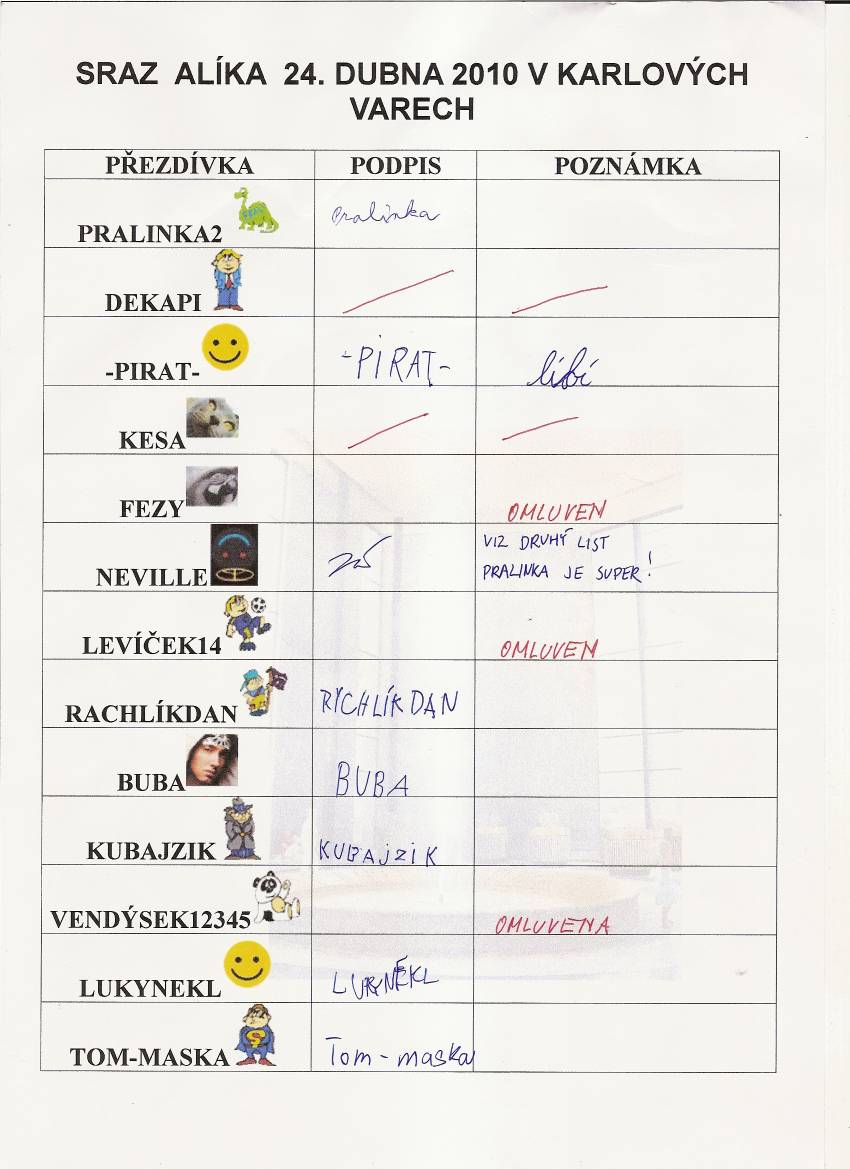 SRAZ ALÍKA 24. DUBNA 2010 V KARLOVÝCH
VARECH
PŘEZDÍVKA PODPIS POZNÁMKA
PRALINKA2 pralinka
DEKAPI
-PIRAT- -PIRAT- líbí
KESA
FEZY OMLUVEN
NEVILLE VIZ DRUHÝ LIST
PRALINKA JE SUPER!
LEVÍČEK14 OMLUVEN
RACHLÍKDAN RYCHLÍKDAN
BUBA BUBA
KUBAJZIK KUBAJZIK
VENDÝSEK12345 OMLUVENA
LUKYNEKL LUKYNĚKL
TOM-MASKA Tom-maska